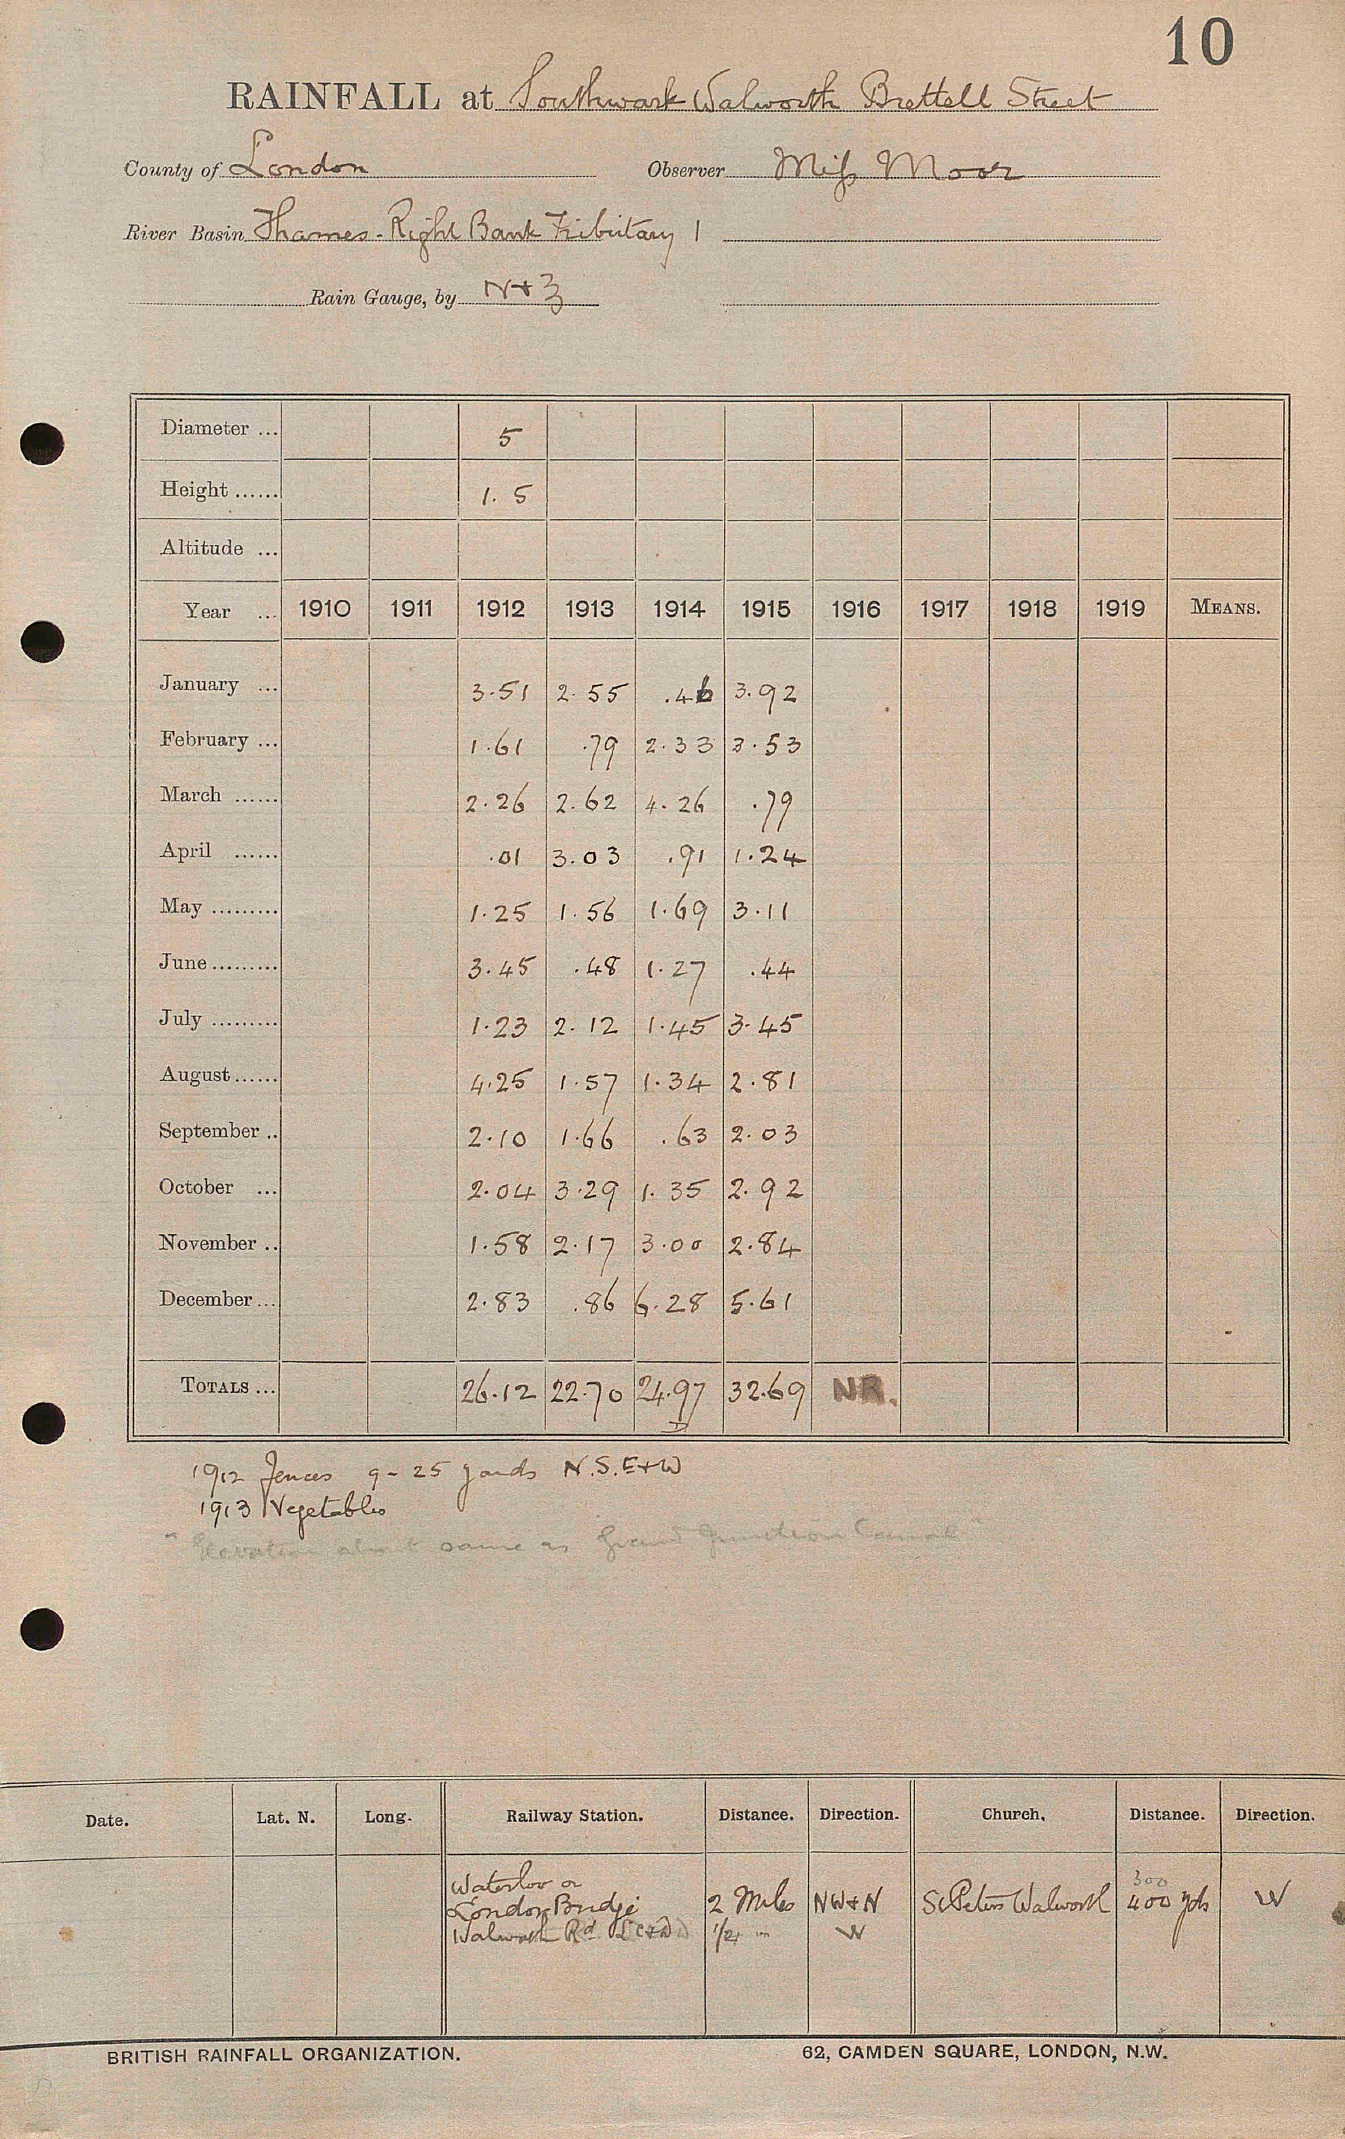 10
RAINFALL at Southwark Walworth Brettell Street
County of London Observer Miss Moor
River Basin Thames - Right Bank Tributary 1
Rain Gauge, by N+Z
Diameter ... 5
Height ...... 1.5
Altitude ...
Year ... 1910 1911 1912 1913 1914 1915 1916 1917 1918 1919 MEANS.
January ... 3.51 2.55 .46 3.92
February ... 1.61 .79 2.33 3.53
March ...... 2.26 2.62 4.26 .79
April ...... .01 3.03 .91 1.24
May ......... 1.25 1.56 1.69 3.11
June ......... 3.45 .48 1.27 .44
July ......... 1.23 2.12 1.45 3.45
August ...... 4.25 1.57 1.34 2.81
September .. 2.10 1.66 .63 2.03
October ... 2.04 3.29 1.35 2.92
November .. 1.58 2.17 3.00 2.84
December ... 2.83 .86 6.28 5.61
TOTALS ... 26.12 22.70 24.97 32.69 NR.
1912 Fences 9-25 yards N.S.E+W
1913 Vegetables
"Elevation about same as Grand Junction Canal"
Date. Lat. N. Long. Railway Station. Distance. Direction. Church. Distance. Direction.
Waterloo or 300
London Bridge 2 Miles NW+N St Peters Walworth 400 yds W
Walworth Rd 1/2 W
BRITISH RAINFALL ORGANIZATION. 62, CAMDEN SQUARE, LONDON, N.W.